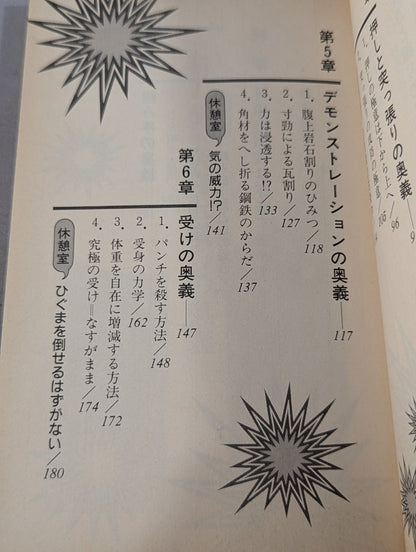 押しと突っ張りの奥義——96
第5章 デモンストレーションの奥義——117
1. 腹上岩石割りのひみつ／118
2. 寸勁による瓦割り／127
3. 力は浸透する!?／133
4. 角材をへし折る鋼鉄のからだ／137
休憩室 気の威力!?／141
第6章 受けの奥義——147
1. パンチを殺す方法／148
2. 受身の力学／162
3. 体重を自在に増減する方法／172
4. 究極の受け＝なすがまま／174
休憩室 ひぐまを倒せるはずがない／180